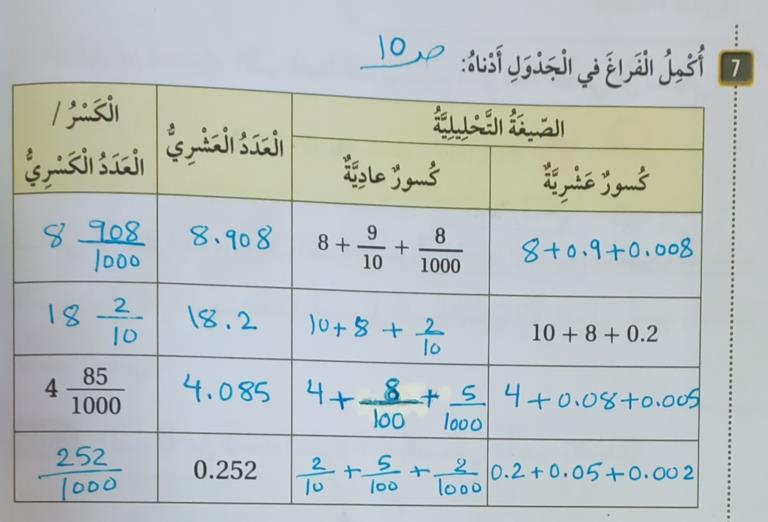 7 أُكْمِلُ الْفَراغَ في الْجَدْوَلِ أَدْناهُ: ص 10
الصّيغَةُ التَّحْليلِيَّةُ | الْعَدَدُ الْعَشْرِيُّ | الْكَسْرُ / الْعَدَدُ الْكَسْرِيُّ
كُسورٌ عَشْرِيَّةٌ | كُسورٌ عادِيَّةٌ
8+0.9+0.008 | 8 + 9/10 + 8/1000 | 8.908 | 8 908/1000
10 + 8 + 0.2 | 10+8 + 2/10 | 18.2 | 18 2/10
4+0.08+0.005 | 4 + 8/100 + 5/1000 | 4.085 | 4 85/1000
0.2+0.05+0.002 | 2/10 + 5/100 + 2/1000 | 0.252 | 252/1000